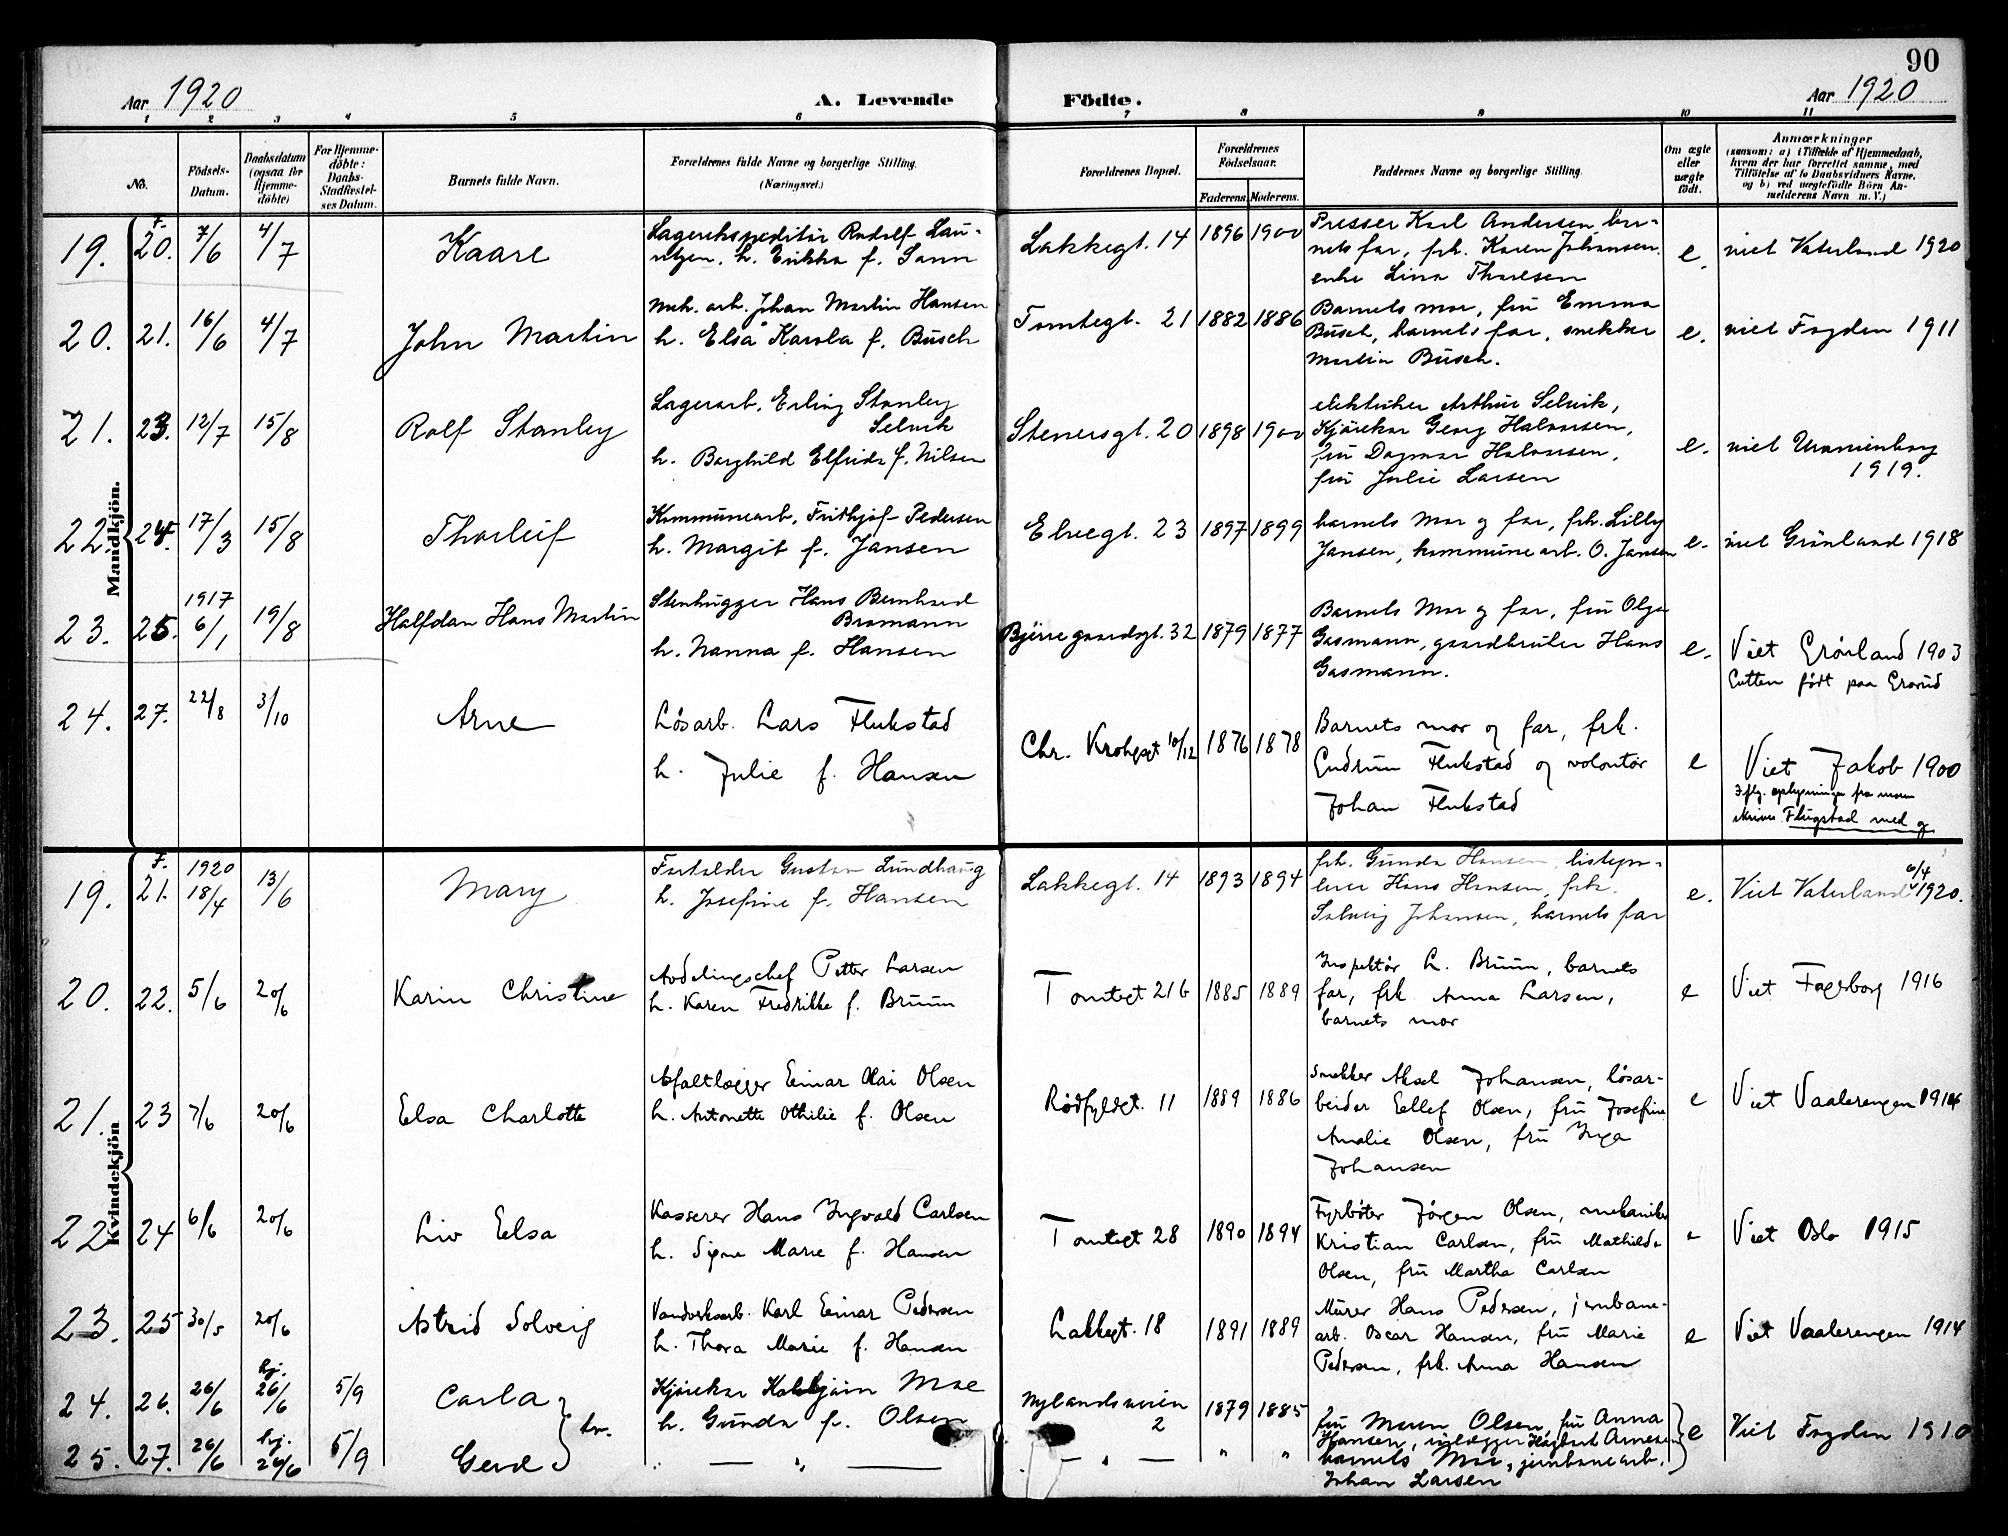 90
Aar 1920
A. Levende Födte.
Aar 1920
1 2 3 4 5 6 7 8 9 10 11
No.
Födsels-
Datum.
Daabsdatum
(ogsaa for
Hjemme-
döbte)
For Hjemme-
döbte:
Daabs-
Stadfestel-
ses Datum.
Barnets fulde Navn.
Forældrenes fulde Navne og borgerlige Stilling.
(Næringsvei.)
Forældrenes Bopæl.
Forældrenes
Födselsaar.
Faderens. Moderens.
Faddernes Navne og borgerlige Stilling.
Om ægte
eller
uægte
født.
Anmærkninger
(saasom: a) i Tilfælde af Hjemmedaab,
hvem der har forrettet samme, med
Tilföielse af to Daabsvidners Navne,
og b) ved uægtefödte Börn An-
melderens Navn m. V.)
Mandkjön.
19. F. 20. 7/6 4/7 Kaare
Lagerekspeditør Rudolf Lau-
ritzen. h. Erikka f. Sann
Lakkegt. 14 1896 1900
Presser Karl Andersen, bar-
nets far, frk. Karen Johansen.
enke Lina Thoresen
e. viet Vaterland 1920
20. 21. 16/6 4/7 John Martin
mek. arb. Johan Martin Hansen
h. Elsa Karola f. Busch
Tomtegt. 21 1882 1886
Barnets mor, fru Emma
Busch, barnets far, snekker
Martin Busch.
e. viet Frogden 1911
21. 23. 12/7 15/8 Rolf Stanley
Lagerarb. Erling Stanley
Selvik
h. Borghild Elfrida f. Nilsen
Stenersgt. 20 1898 1900
elektriker Arthur Selvik,
Kjørekar Georg Halvorsen,
fru Dagmar Halvorsen,
fru Julie Larsen
e. viet Uranienborg
1919.
22. 24. 17/3 15/8 Thorleif
Kommunearb. Fridthjof Pedersen
h. Margit f. Jansen
Elvegt. 23 1897 1899
barnets Mor og far, frk. Lilly
Jansen, kommunearb. O. Jansen
e. viet Grønland 1918
23. 25. 1917 6/1 19/8 Halfdan Hans Martin
Stenhugger Hans Bernhard
Bromann
h. Nanna f. Hansen
Bjerregaardsgt. 32 1879 1877
Barnets Mor og far, fru Olga
Gasmann, gaardbruker Hans
Gasmann.
e. Viet Grønland 1903
Gutten født paa Grorud
24. 27. 22/8 3/10 Arne
Løsarb. Lars Flukstad
h. Julie f. Hansen
Chr. Krohgsgt 10/12 1876 1878
Barnets mor og far, frk.
Gudrun Flukstad og volontør
Johan Flukstad
e Viet Jakob 1900
Iflg. oplysninger fra moren
skrives Flugstad med g
Kvindekjön
19. F. 21. 1920 18/4 13/6 Mary
Forgylder Gustav Lundhaug
h. Josefine f. Hansen
Lakkegt. 14 1893 1894
frk. Gunda Hansen, listepr-
Hans Hansen, frk.
Solveig Johansen, barnets far
e. Viet Vaterland 1920.
20. 22. 5/6 20/6 Karin Christine
Avdelingschef Petter Larsen
h. Karen Fredrikke f. Bruun
Tomtegt 21b 1885 1889
Inspektør L. Bruun, barnets
far, frk Anna Larsen,
barnets mor
e Viet Fagerborg 1916
21. 23 7/6 20/6 Elsa Charlotte
Asfaltlægger Einar Olai Olsen
h. Antonette Othilie f. Olsen
Rødfyldgt. 11 1889 1886
Snekker Aksel Johansen, løsar-
beider Eellef Olsen, fru Josefine
Amalie Olsen, fru Inga
Johansen
e Viet Vaalerengen 1914
22. 24 6/6 20/6 Liv Elsa
Kasserer Hans Ingvald Carlsen
h. Signe Marie f. Hansen
Tomtegt 28 1890 1894
Fyrbøter Jørgen Olsen, mekaniker
Kristian Carlsen, fru Mathilde
Olsen, fru Martha Carlsen
e Viet Oslo 1915
23. 25 30/5 20/6 Astrid Solveig
Vandverksarb. Karl Einar Pedersen
h. Thora Marie f. Hansen
Lakkegt. 18 1891 1889
Murer Hans Pedersen, jernbane-
arb. Oscar Hansen, fru Marie
Pedersen, frk. Anna Hansen
e Viet Vaalerengen 1914
24. 26. 26/6 hj. 26/6 5/9 Carla
Kjørekar Kolbjørn Moe
h. Gunda f. Olsen
Nylandsveien
2 1879 1885
25. 27. 26/6 hj. 26/6 5/9 Gerd
tv.
fru Maren Olsen, fru Anna
Hansen, Arnesen
barnets Mor, jernbanearb.
Johan Larsen
e Viet Frogden 1910